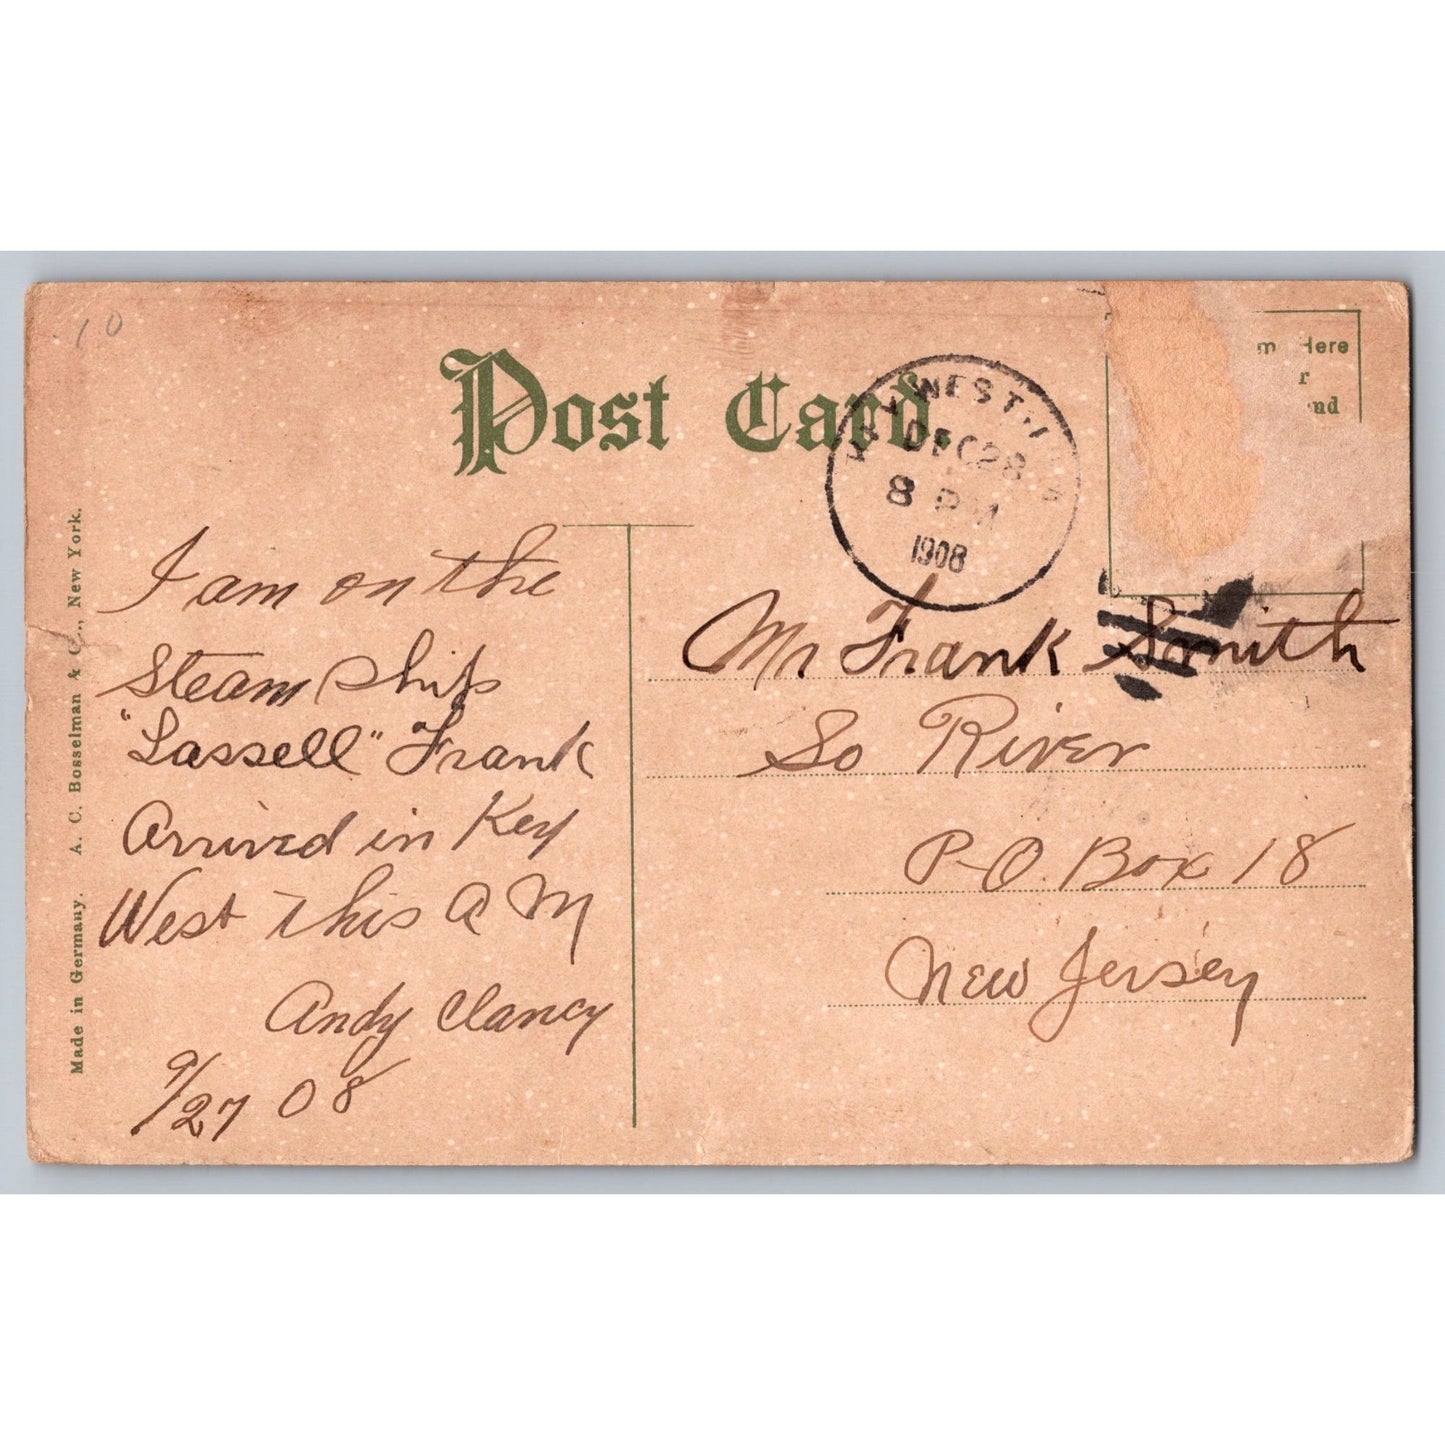 10
Post Card.
m Here
r
nd
KEY WEST
DEC 28
8 PM
1908
I am on the
Steam Ship
"Lassell" Frank
Arrived in Key
West this A M
Andy Clancy
9/27 08
Mr Frank Smith
So River
P-O. Box 18
New Jersey
Made in Germany. A. C. Bosselman & C., New York.